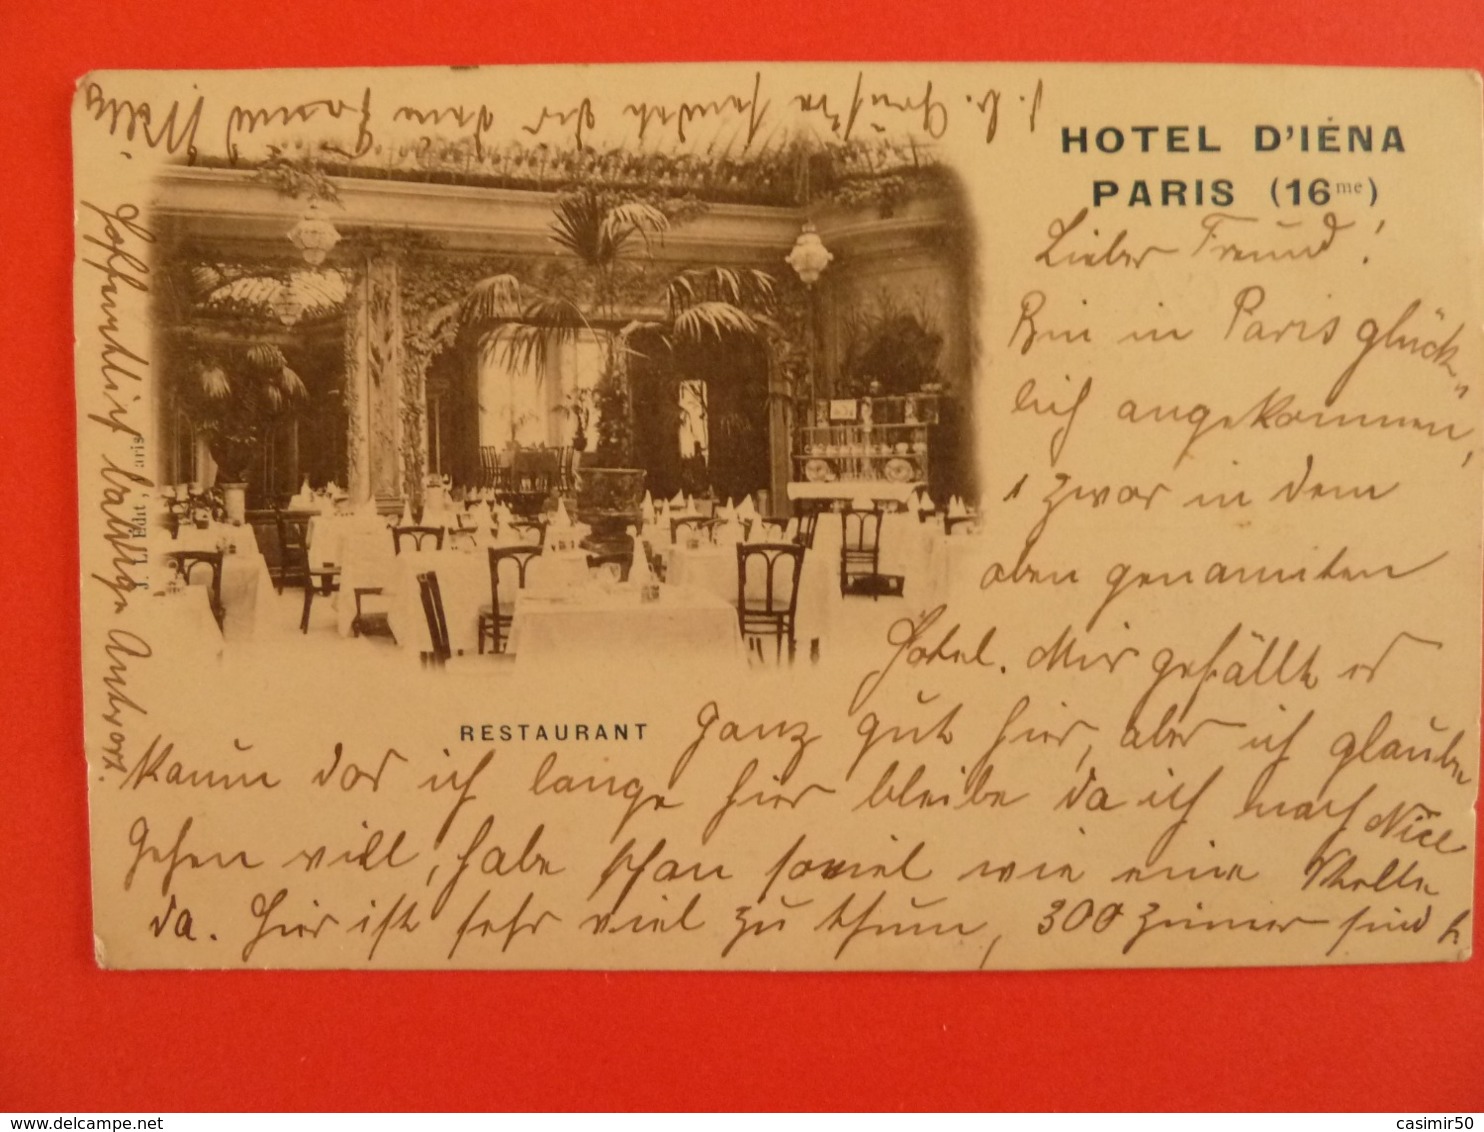 HOTEL D'IÉNA
PARIS (16me)
Lieber Freund!
Bin in Paris glück-
lich angekommen,
zwar in dem
oben genannten
Hotel. Mir gefällt es
RESTAURANT
ganz gut hier, aber ich glaube
kaum das ich lange hier bleibe da ich nach Nice
gehen will, habe schon soviel wie eine Stelle
da. Hier ist sehr viel zu thum, 300 Zimmer sind h.
Hoffendlich baldige Antwort.
Grüße sendet dir dein Freund Willy
J. L. Edit, aris
www.delcampe.net
casimir50